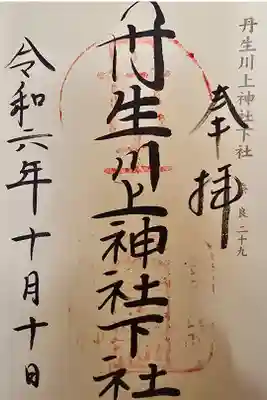 丹生川上神社下社 奈良二十九
奉拝
丹生川上神社下社
令和六年十月十日